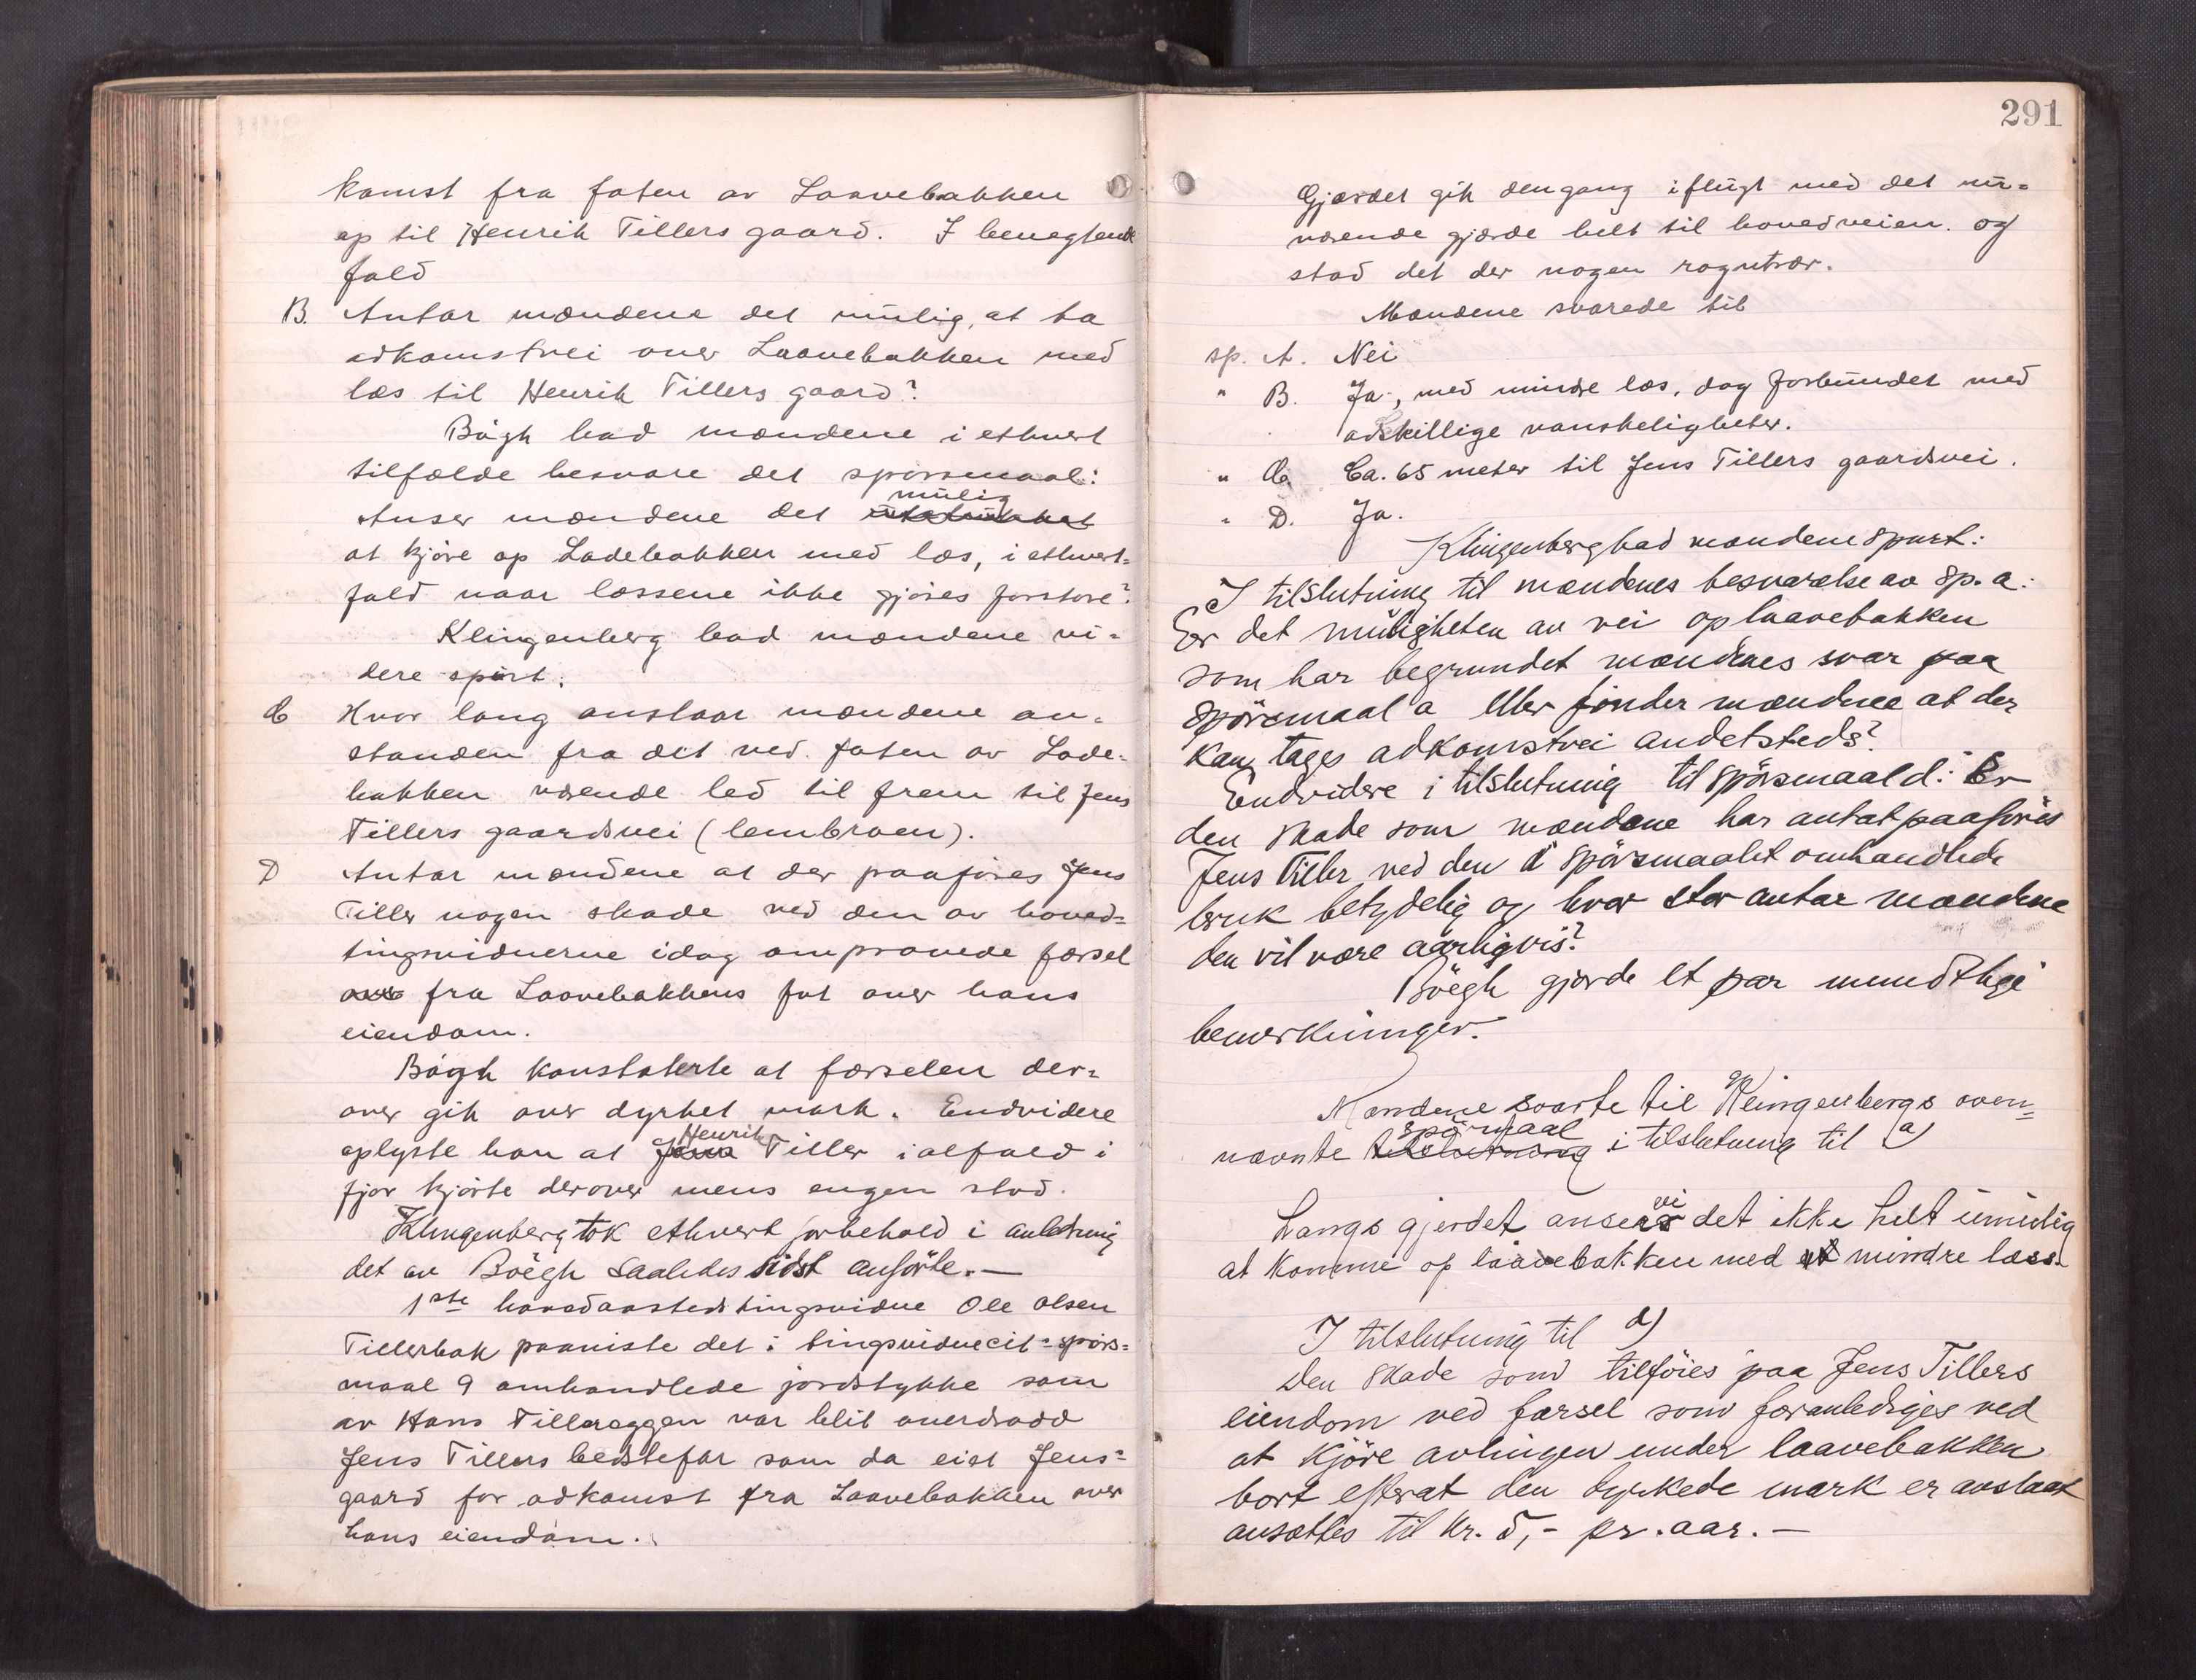 komst fra foten av Laavebakken
op til Henrik Tillers gaard. I benegtende
fald
B. Antar mændene det mulig, at ta
adkomstvei over Laavebakken med
læs til Henrik Tillers gaard?
Bögh bad mændene i ethvert
tilfælde besvare det spørsmaal:
mulig
Anser mændene det
at kjöre op Ladebakken med læs, i ethvert-
fald naar læssene ikke gjöres forstore?
Klingenberg bad mændene vi-
dere spurt:
C Hvor lang anslaar mændene av-
standen fra det ved foten av Lade-
bakken værende led til frem til Jens
Tillers gaardsvei (lembroen).
D Antar mændene at der paaföres Jens
Tiller nogen skade ved den av hoved-
tingsvidnerne idag omprövede færsel
over fra Laavebakkens fot over hans
eiendom.
Bögh konstaterte at færselen der-
over gik over dyrket mark. Endvidere
Henrik
oplyste han at Jens Tiller ialfald i
fjor kjörte derover mens engen stod.
Klingenberg tok ethvert forbehold i anledning
det av Böegh saaledes sidst anförte.—
1ste hovedaastedstingsvidne Ole Olsen
Tillerbak paaviste det i tingsvidnecit-spörs-
maal 9 omhandlede jordstykke som
av Hans Tilleraggen var blit overdradd
Jens Tillers bedstefar som da eiet Jens-
gaard for adkomst fra Laavebakken over
hans eiendom.
291
Gjærdet gik dengang iflugt med det nu-
værende gjærde helt til hovedveien. og
stod det der nogen rogntrær.
Mændene svarede til
sp. A. Nei
" B. Ja, med mindre læs, dog forbundet med
adskillige vanskeligheter.
" C. Ca. 65 meter til Jens Tillers gaardsvei.
" D. Ja.
Klingenberg bad mændene spurt:
I tilslutning til mændenes besvarelse av sp. a:
Er det muligheten av vei op laavebakken
som har begrundet mændenes svar paa
spörsmaal a eller finder mændene at der
kan tages adkomstvei andetsteds?
Endvidere i tilslutning til spörsmaal d: Er
den skade som mændene har antat paaföres
Jens Tiller ved den i spörsmaalet omhandlede
bruk betydelig og hvor stor antar mændene
den vil være aarligvis?
Böegh gjorde et par mundtlige
bemerkninger.
Mændene svarte til Klingenbergs oven-
spörmaal
nævnte tilslutning i tilslutning til a)
vi
Langs gjerdet anser det ikke helt umulig
at komme op laavebakken med et mindre læss.
I tilslutning til d)
Den skade som tilföies paa Jens Tillers
eiendom ved færsel som foranlediges ved
at kjöre avlingen under laavebakken
bort efterat den dyrkede mark er avslaat
ansættes til kr. 5,- pr. aar.—